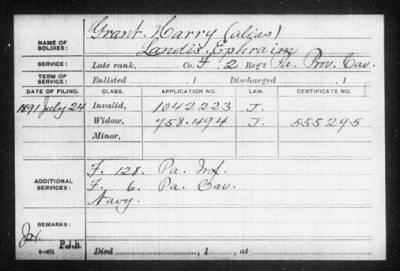 NAME OF SOLDIER: Grant, Harry (alias)
Landis, Ephraim
SERVICE: Late rank, Co. F, 2 Reg't Pa. Prov. Cav.
TERM OF SERVICE: Enlisted , 1 Discharged , 1
DATE OF FILING. CLASS. APPLICATION NO. LAW. CERTIFICATE NO.
1891 July 24 Invalid, 1042.223 J.
Widow, 758.494 J. 555295
Minor,
ADDITIONAL SERVICES: F. 128. Pa. Inf.
F. 6. Pa. Cav.
Navy.
REMARKS:
P.J.B.
Died , 1 , at